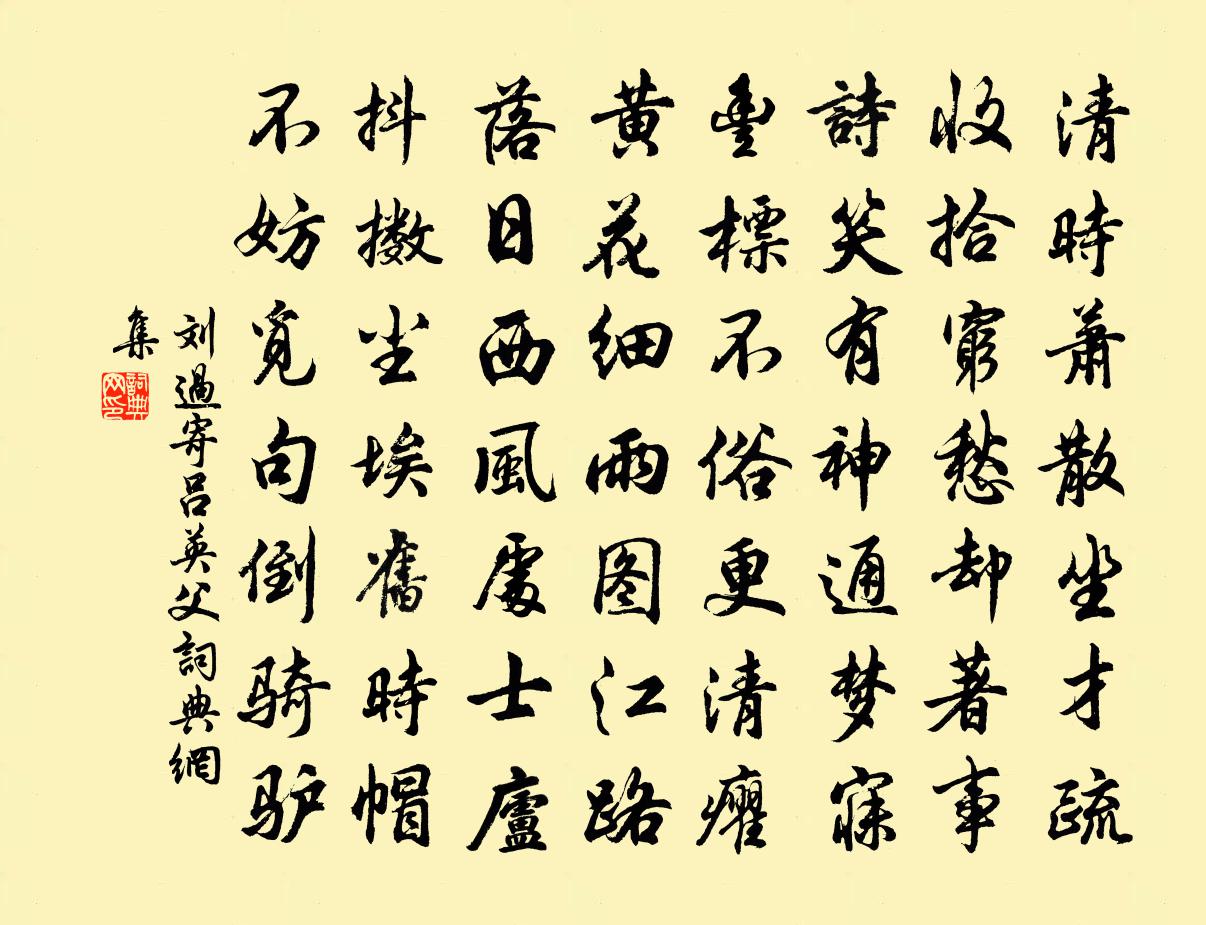 清時蕭散坐才疏
收拾窮愁却著事
詩笑有神通梦寐
豊標不俗更清癯
黄花細雨图江路
落日西風處士廬
抖擞尘埃舊時帽
不妨覓句倒骑驴
刘過寄呂英父詞典網
集
詞典网印